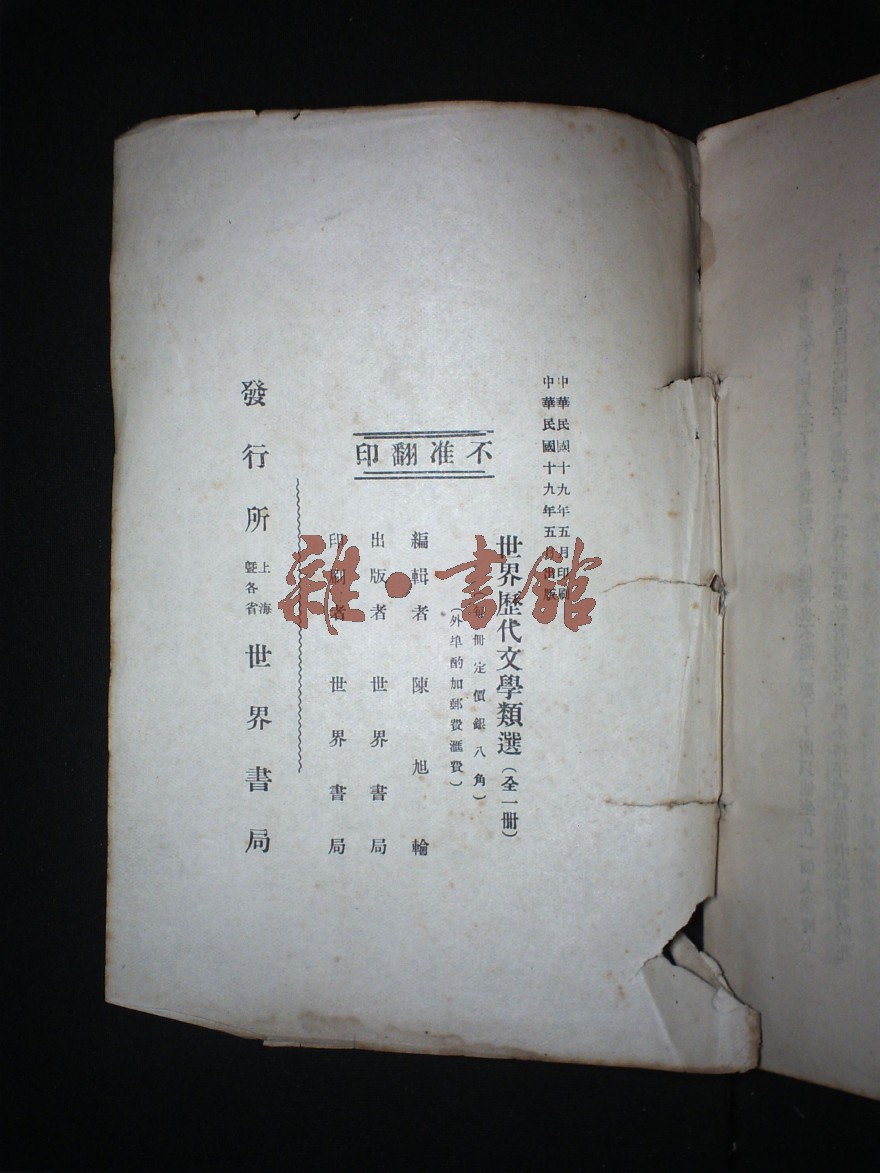 中華民國十九年五月印刷
中華民國十九年五月出版
世界歷代文學類選（全一冊）
每冊定價銀八角）
（外埠酌加郵費滙費）
不准翻印
編輯者 陳旭輪
出版者 世界書局
印刷者 世界書局
發行所 上海暨各省 世界書局
雜·書館